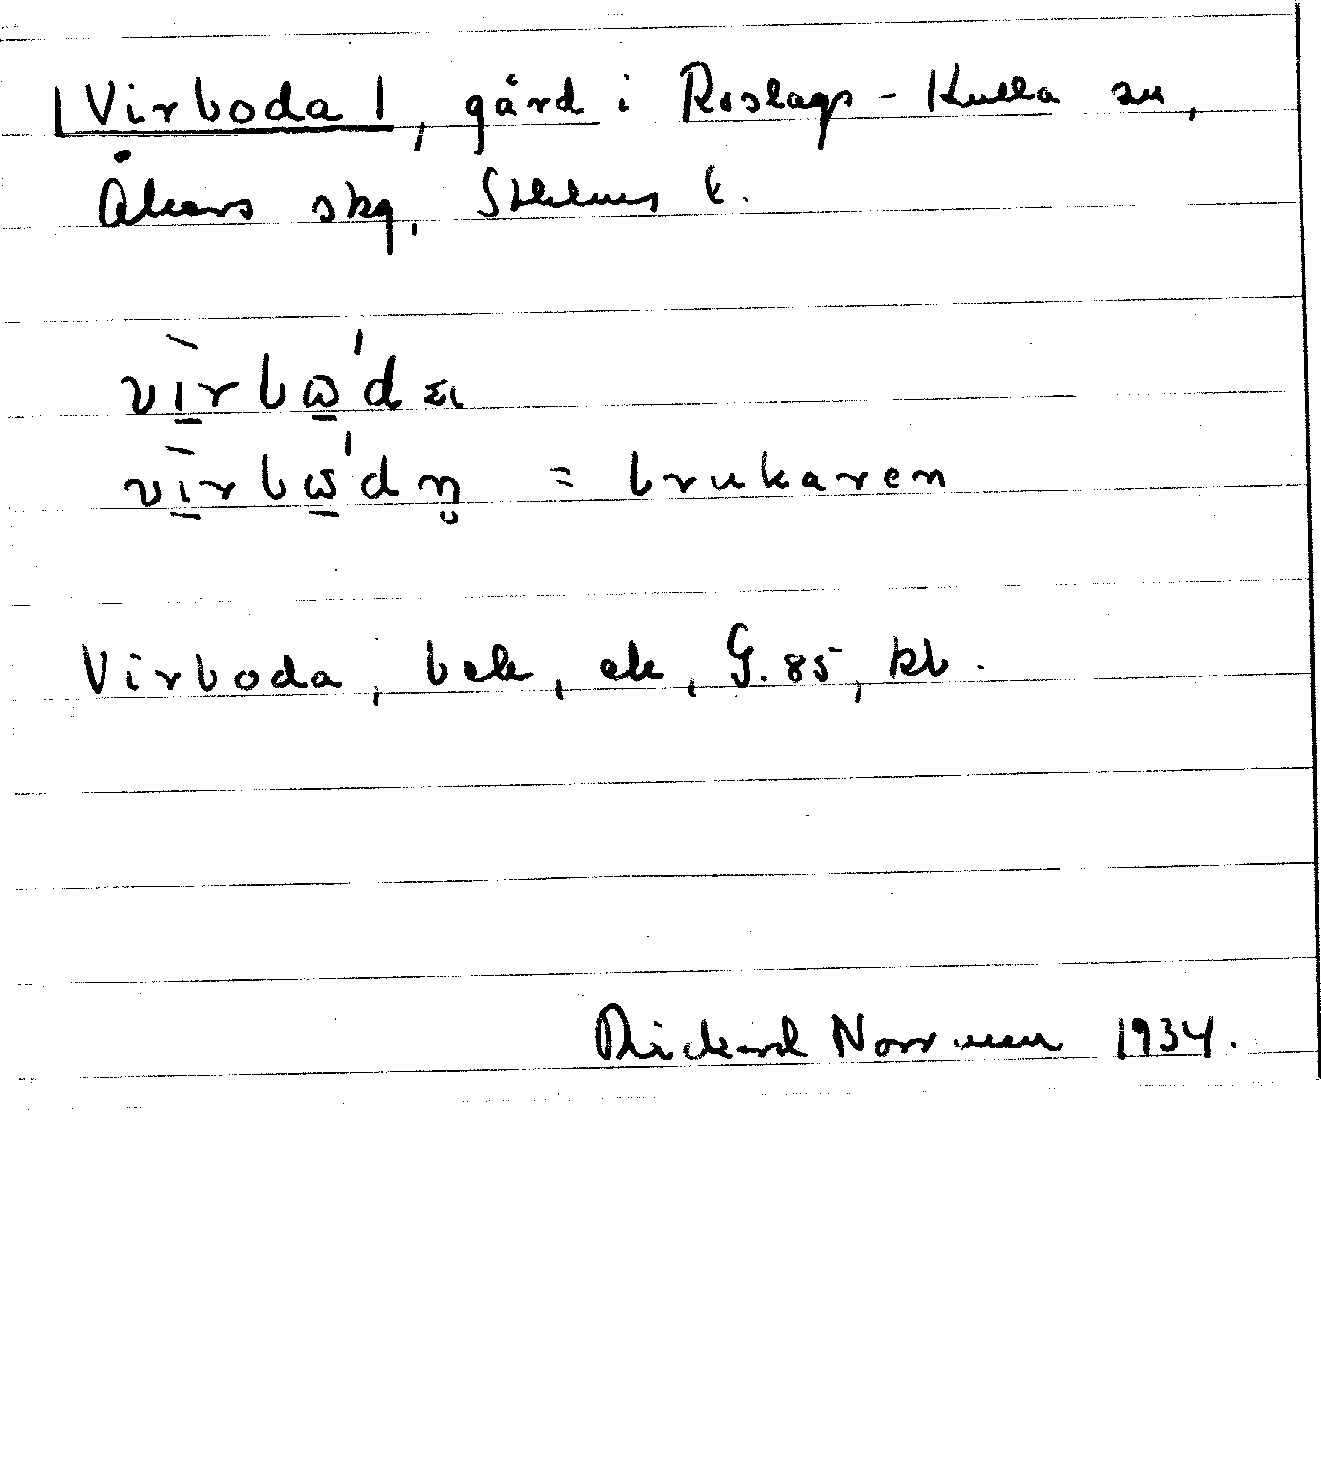 |Virboda|, gård i Roslags-Kulla sn,
Åkers skg, Sthlms l.
vìrbωˈda
vìrbωˈdn̥ = brukaren
Virboda, bek, ek, G. 85, kb.
Rickard Norrman 1934.